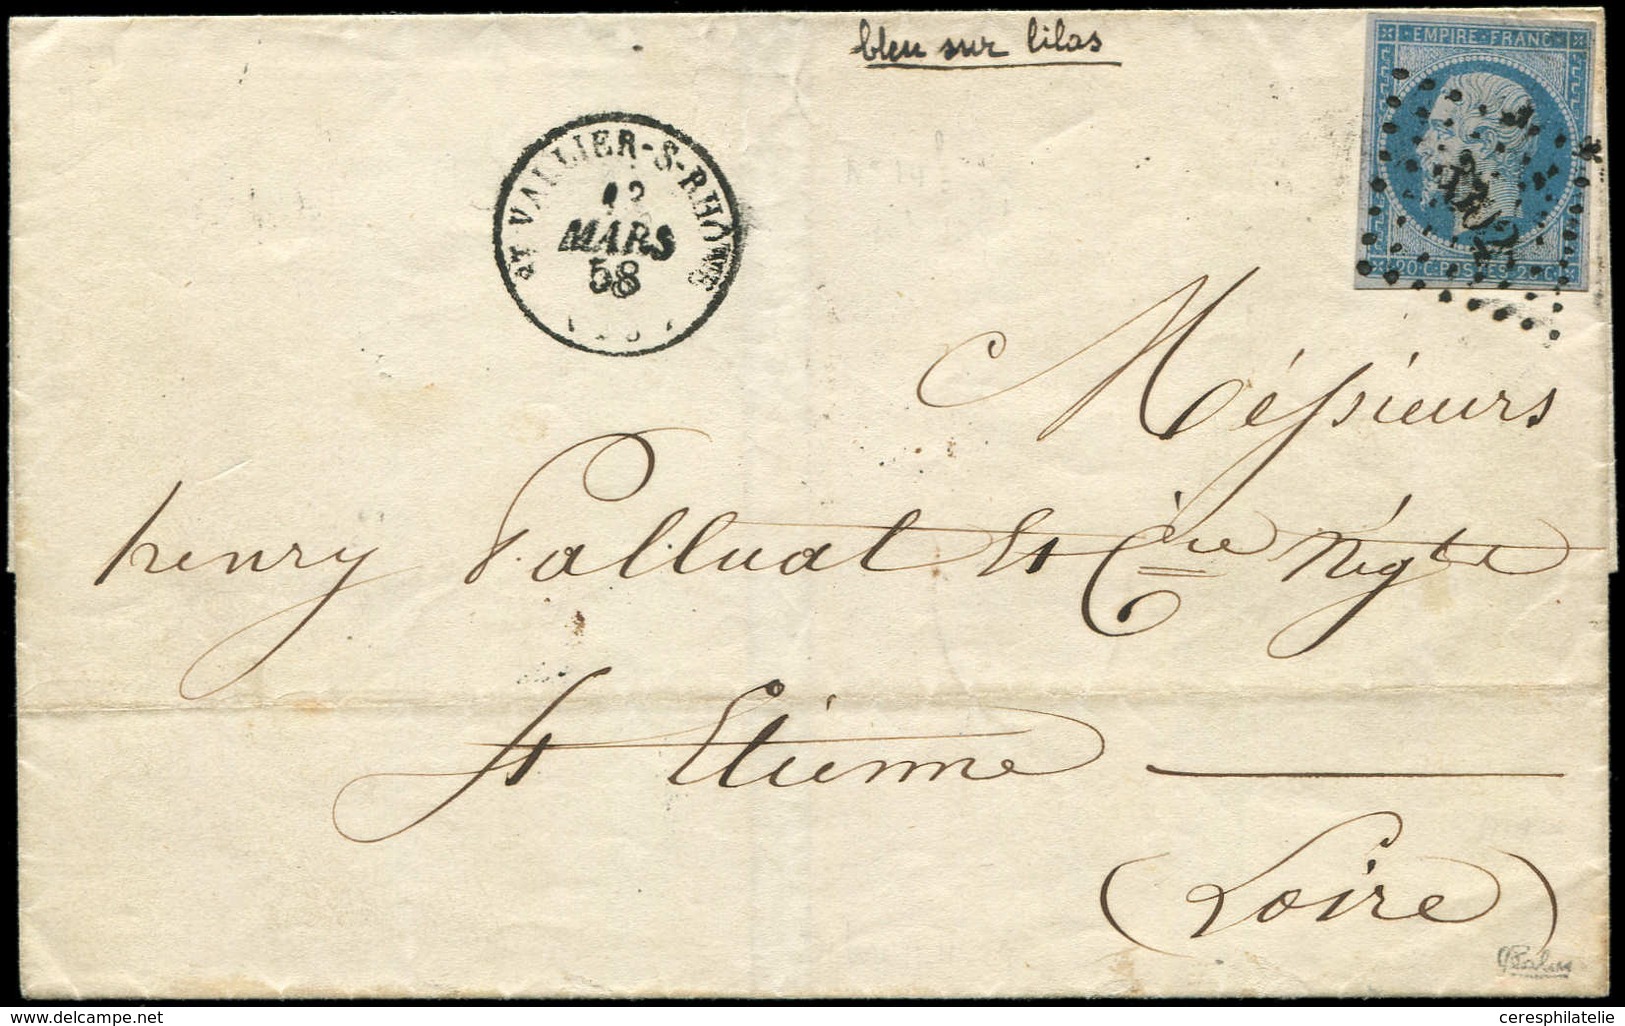 bleu sur lilas
EMPIRE·FRANC
20·C·POSTES·20·C·
ST VALLIER-S-RHÔNE
12
MARS
58
Messieurs
henry Palluat et Cie Négts
St Etienne
(Loire)
© delcampe.net
ceresphilatelie